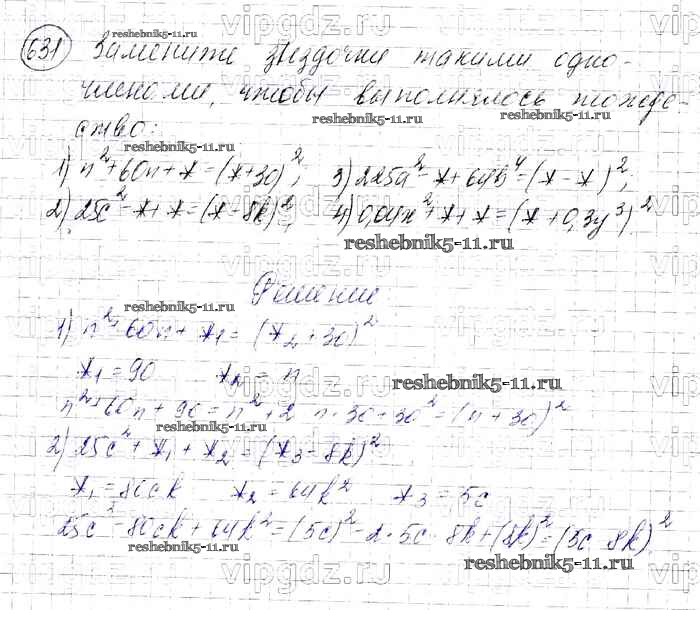 631 Замените звёздочки такими одно-
членами, чтобы выполнялось тождес-
ство:
1) n²+60n+*=(*+30)²; 3) 225a²-*+64b⁴=(*-*)²;
2) 25c²-*+*=(*-8k)²; 4) 0,04x²+*+*=(*+0,3y³)²
Решение
1) n²+60n+*₁=(*₂+30)²
*₁=90 *₂=n
n²+60n+90=n²+2·n·30+30²=(n+30)²
2) 25c²+*₁+*₂=(*₃-8k)²
*₁=80ck *₂=64k² *₃=5c
25c²-80ck+64k²=(5c)²-2·5c·8k+(8k)²=(5c-8k)²
vipgdz.ru
reshebnik5-11.ru